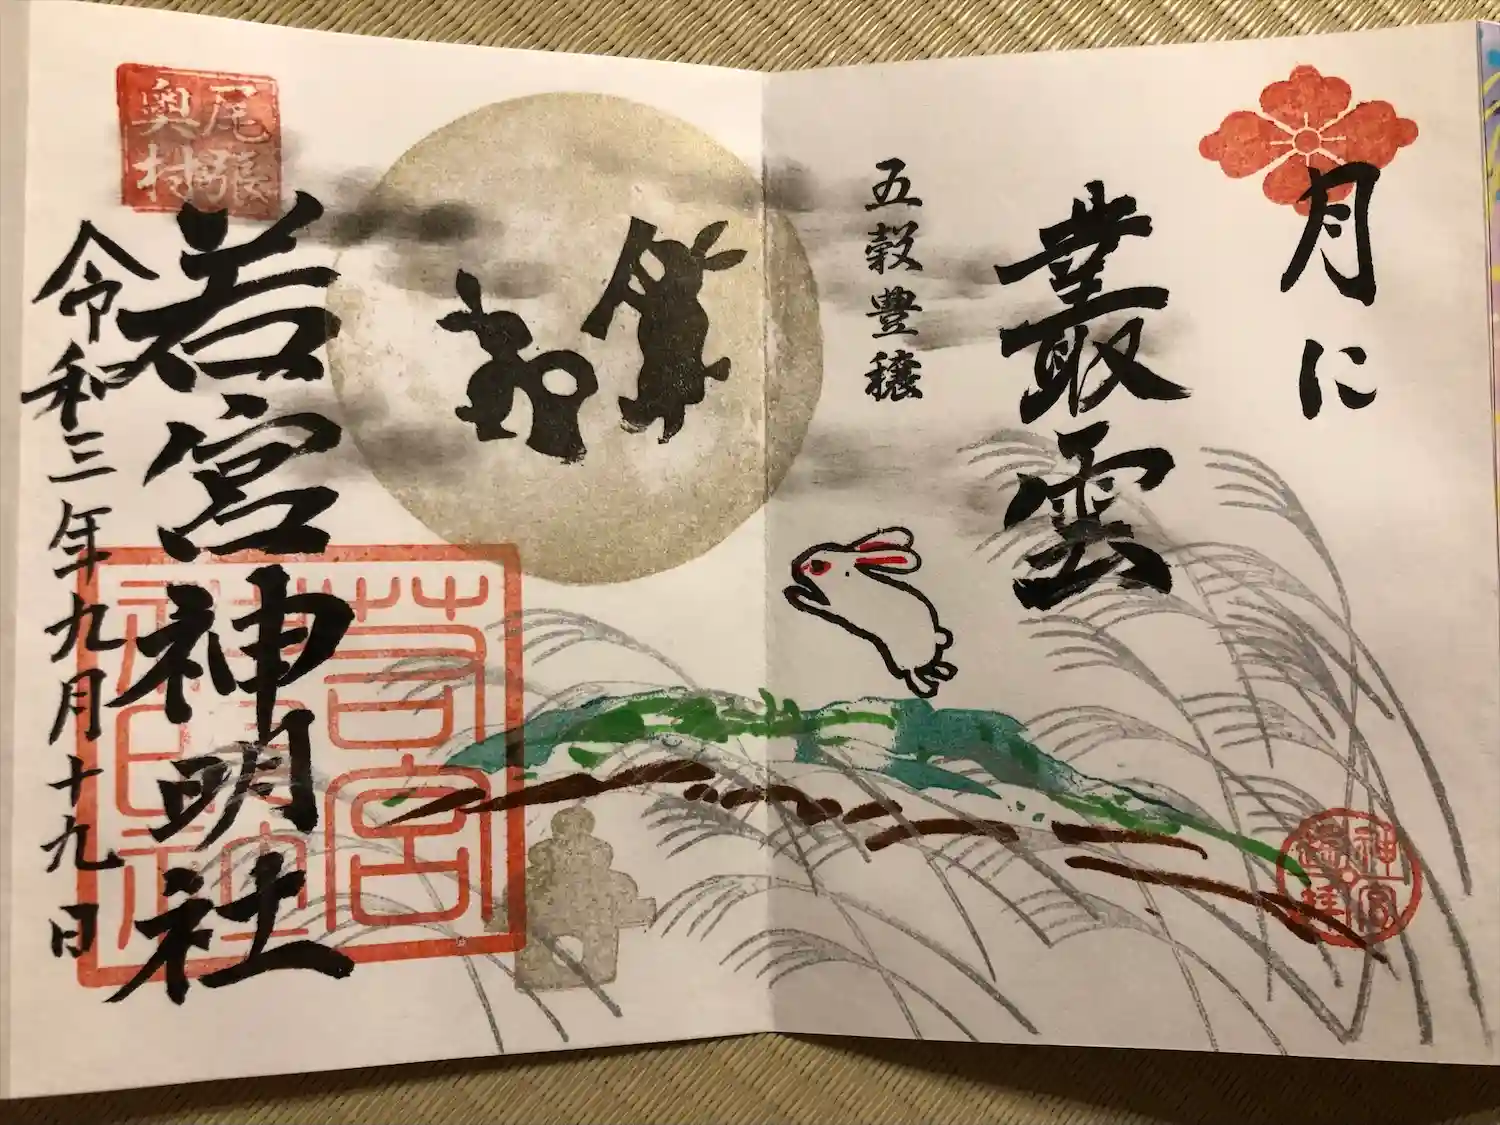 月に
叢雲
五穀豊穣
神宮
遙拝
尾張
奥村
若宮神明社
令和三年九月十九日
若宮